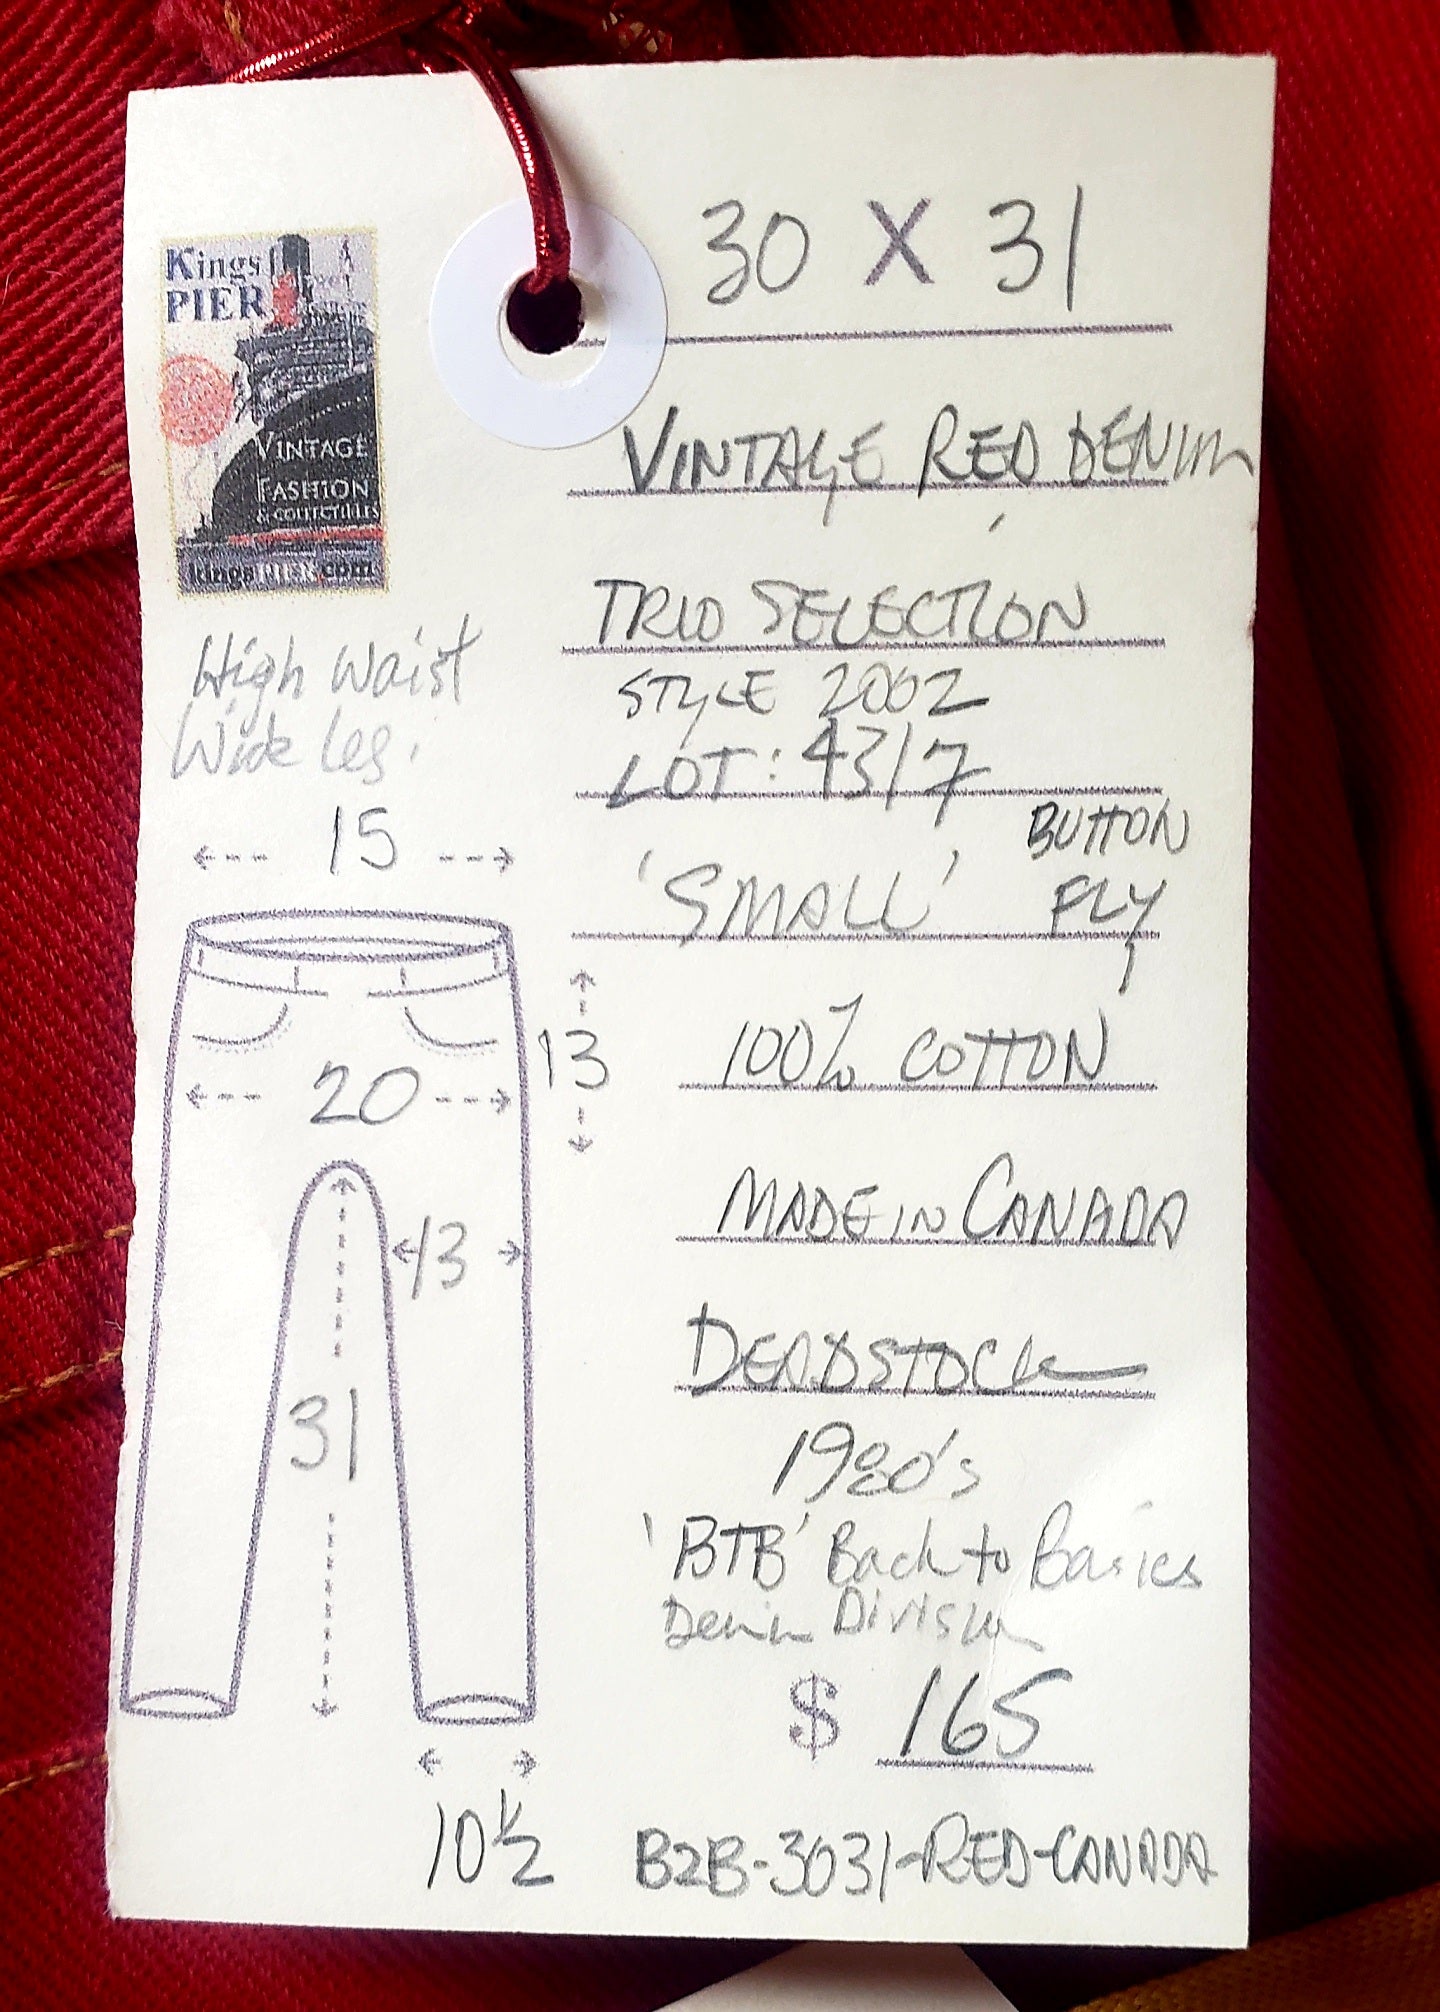 30 X 31
Kings
PIER
VINTAGE
FASHION
& COLLECTIBLES
kingsPIER.com
VINTAGE RED DENIM
TRIO SELECTION
STYLE 2002
LOT: 4317
High Waist
Wide Leg.
15
BUTTON
FLY
'SMALL'
13
20
100% COTTON
MADE IN CANADA
13
DEADSTOCK
31
1980's
'BTB' Back to Basics
Denim Division
$ 165
10 1/2
B2B-3031-RED-CANADA